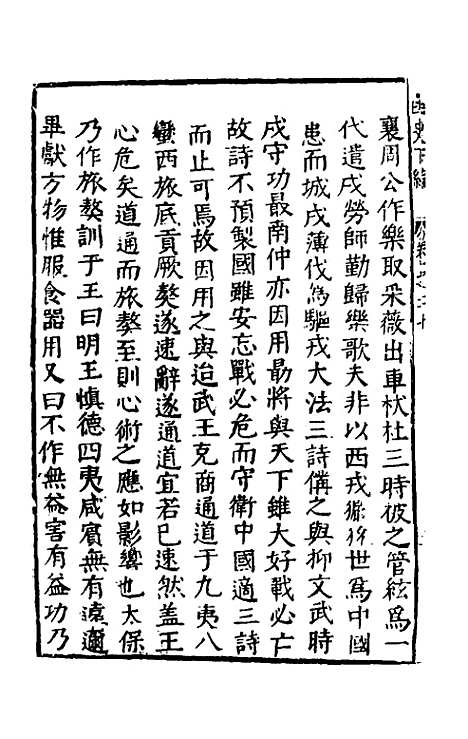 襄周公作樂取采薇出車杕杜三時彼之管絃為一
代遣戍勞師勤歸樂歌夫非以西戎獫狁世為中國
患而城戍薄伐為驅戎大法三詩備之與抑文武時
戍守功最南仲亦因用最將與天下雖大好戰必亡
故詩不預製國雖安忘戰必危而守衛中國適三詩
而止可焉故因用之與迨武王克商通道于九夷八
蠻西旅底貢厥獒遂速辭遂通道宜若已速然盖王
心危矣道通而旅獒至則心術之應如影響也太保
乃作旅獒訓于王曰明王慎德四夷咸賓無有遠邇
畢獻方物惟服食器用又曰不作無益害有益功乃
下編